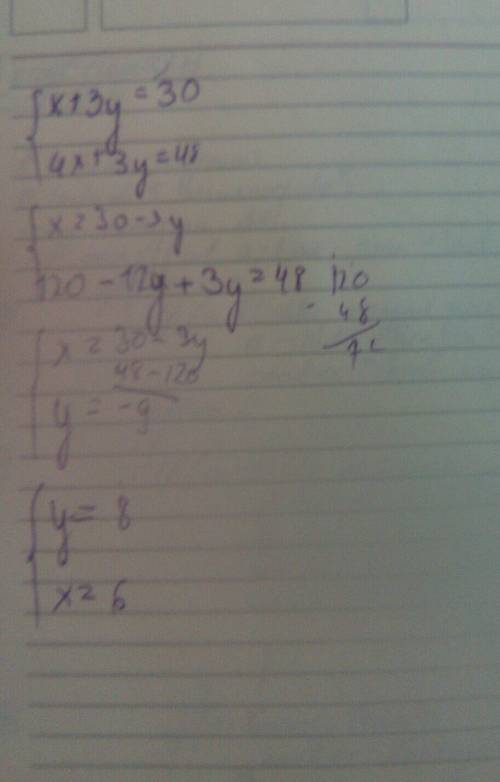 x+3y=30
4x+3y=48
x=30-3y
120-12y+3y=48
120
- 48
72
x=30-3y
48-120
y= -9
y= 8
x= 6